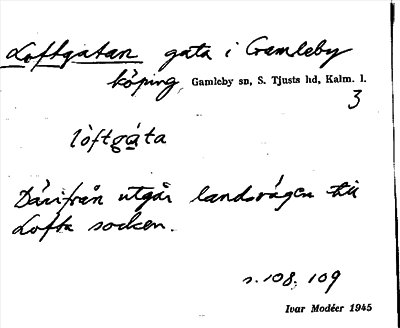 Loftgatan gata i Gamleby
köping, Gamleby sn, S. Tjusts hd, Kalm. l.
3
lòftgáta
Därifrån utgår landsvägen till
Lofta socken.
s. 108, 109
Ivar Modéer 1945